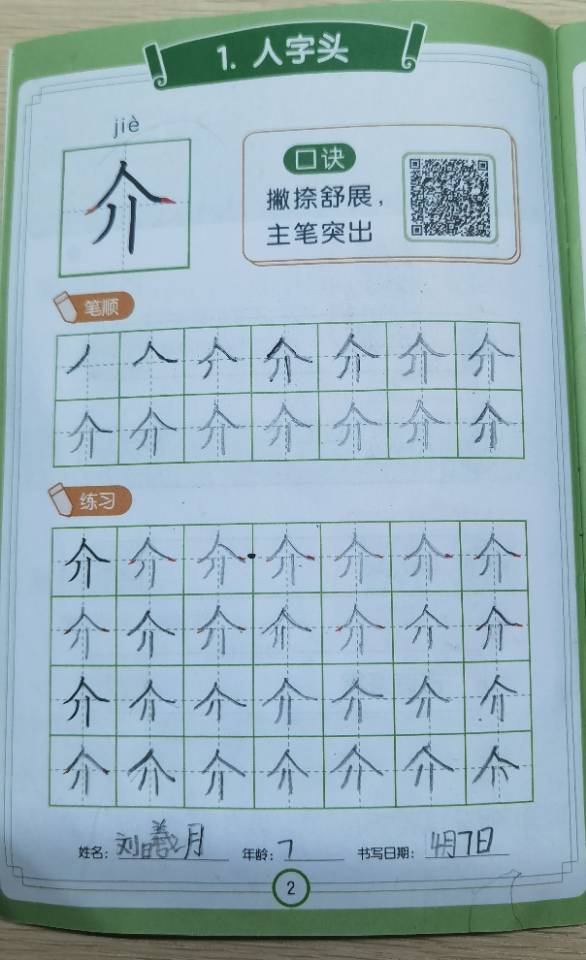 1. 人字头
jiè
介
口诀
撇捺舒展，
主笔突出
笔顺
丿 人 介 介 介 介
介 介 介 介 介 介 介
练习
介 介 介 介 介 介 介
介 介 介 介 介 介 介
介 介 介 介 介 介 介
介 介 介 介 介 介 介
姓名：刘曦月 年龄：7 书写日期：4月7日
2